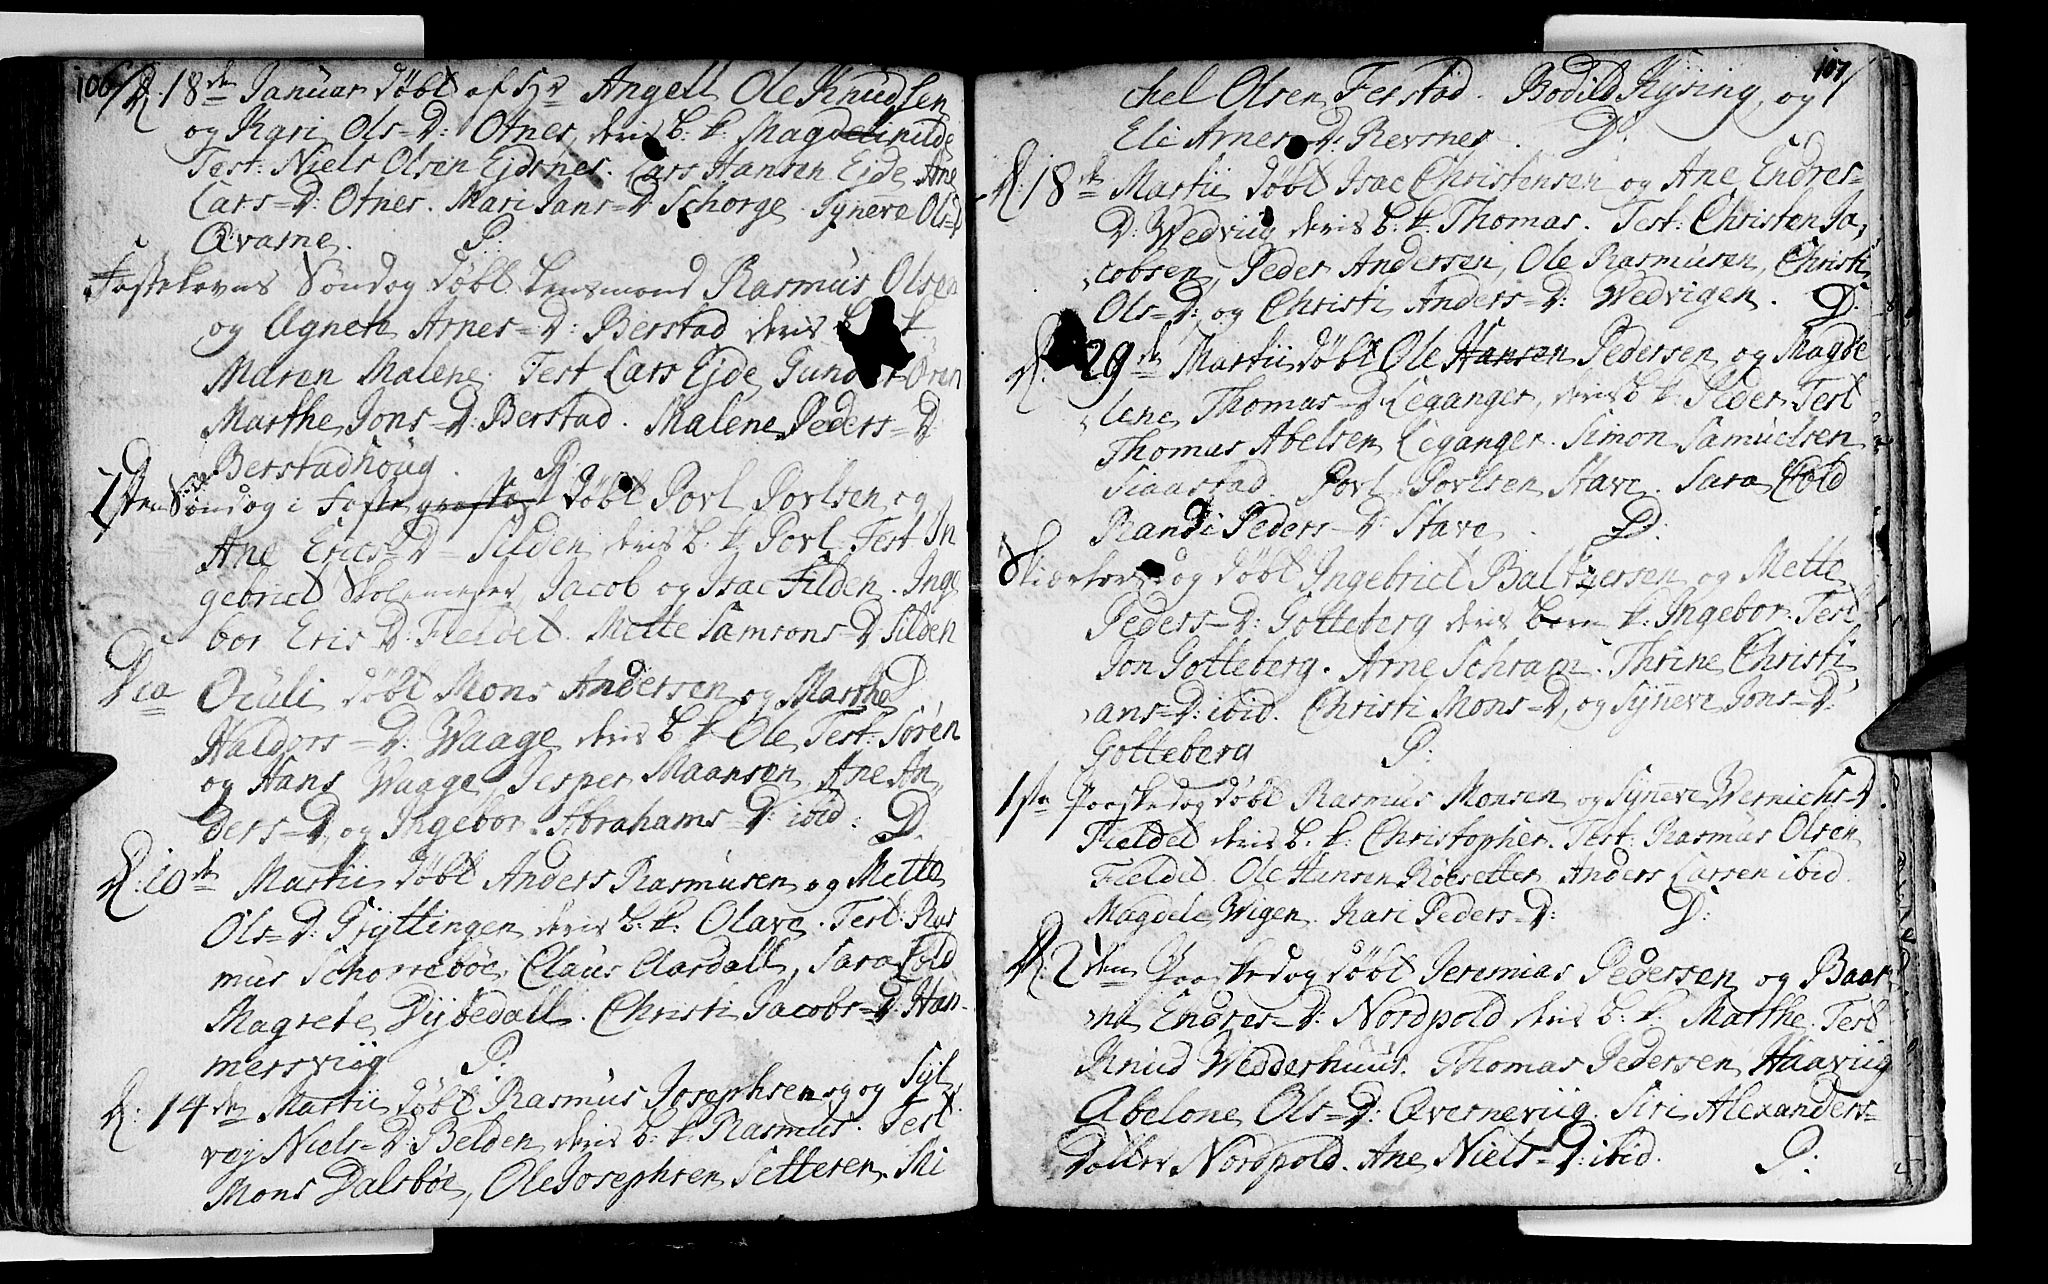 106/
D. 18de Januar døbt af Hr Angell Ole Knudsen
og Kari Ols=D: Otnes, deris b: k. Magdehilde
Test: Niels Olsen Ejdsnes. Lars Hansen Ejde, Ane
Lars=D: Otnes. Mari Jans=D Schorge. Syneve Ols=D
Qvasne. P:
Fastelavns Søndag døbt Lensmand Rasmus Olsen
og Agnete Arnes=D: Berstad deris b k
Maren Malene. Test Lars Ejde, Gunder Øren
Marthe Jons=D: Berstad. Malene Peders=D
Berstadhoug. P
1sten Søndag i Faste døbt Povl Povlsen og
Ane Erics=D= Silden deris b. k. Povl. Test In
gebrict Skolemester, Jacob og Isac Silden. Inge
bor Eris D: Fieldet. Mette Samsons=D Silden
D
Dca Oculi døbt Mons Andersen og Marthe
Haldors=D: Waage deris b k Ole, Test: Søren
og Hans Waage, Jesper Maansen, Ane An,
ders=D, og Ingebor Abrahams=D: ibid: D.
D: 10de Martii døbt Anders Rasmusen og Mette
Ols=D: Gryttingen deris b: k: Olave. Test: Ras
mus Schorrebøe, Claus Aardall, Sara Cold
Magrete Dybedall. Christi Jacobs=D. Ham
mersviig P.
D: 14de Martii døbt Rasmus Josephsen og Syl,
væj Niels=D: Belden deris b: k: Rasmus. Test.
Mons Dalsbøe, Ole Josephsen Setteren. Mi
107/
chel Olsen Ferstad. Bodild Kysing, og
Eli Arnes D. Revsnes. D:
D: 18de Martii døbt Isac Christensen og Ane Endres=
D: Wedviig deris b: k. Thomas. Test: Christen Ja,
cobsen, Peder Andersen, Ole Rasmusen, Christi
Ols=D: og Christi Anders=D: Wedvigen. D.
D. 29de Martii døbt Ole Hansen Pedersen og Magde
lene Thomas=D Leganger, deris b k: Peder. Test
Thomas Abelsen Leganger. Simon Samuelsen
Siaastad. Povl Povlsen Stave. Sara Cold
Randi Peders=D: Stave. D:
Skiertorsdag døbt Ingebrict Baltzersen og Mette
Peders=D: Gotteberg deris barn k: Ingebor. Test
Jon Gotteberg. Arne Schram. Thrine Christi,
ans=D: ibid. Christi Mons=D, og Synneve Jons=D:
Gotteberg P:
1ste Paaskedag døbt Rasmus Monsen og Synneve Wernichs=D.
Fieldet deris b. k: Christopher. Test: Rasmus Olsen
Fieldet. Ole Hansen Røesetter, Anders Larsen ibid.
Magdele Wigen. Kari Peders=D: D:
D. 2den Paaskedag døbt Jeremias Pedersen og Baar
ne Endres=D: Nordpold deris b: k. Marthe. Test
Knud Wedderhuus. Thomas Pedersen Haaviig
Abelone Ols=D: Qverneviig. Siri Alexanders=
Datter Nordpold. Ane Niels=D: ibid. P: